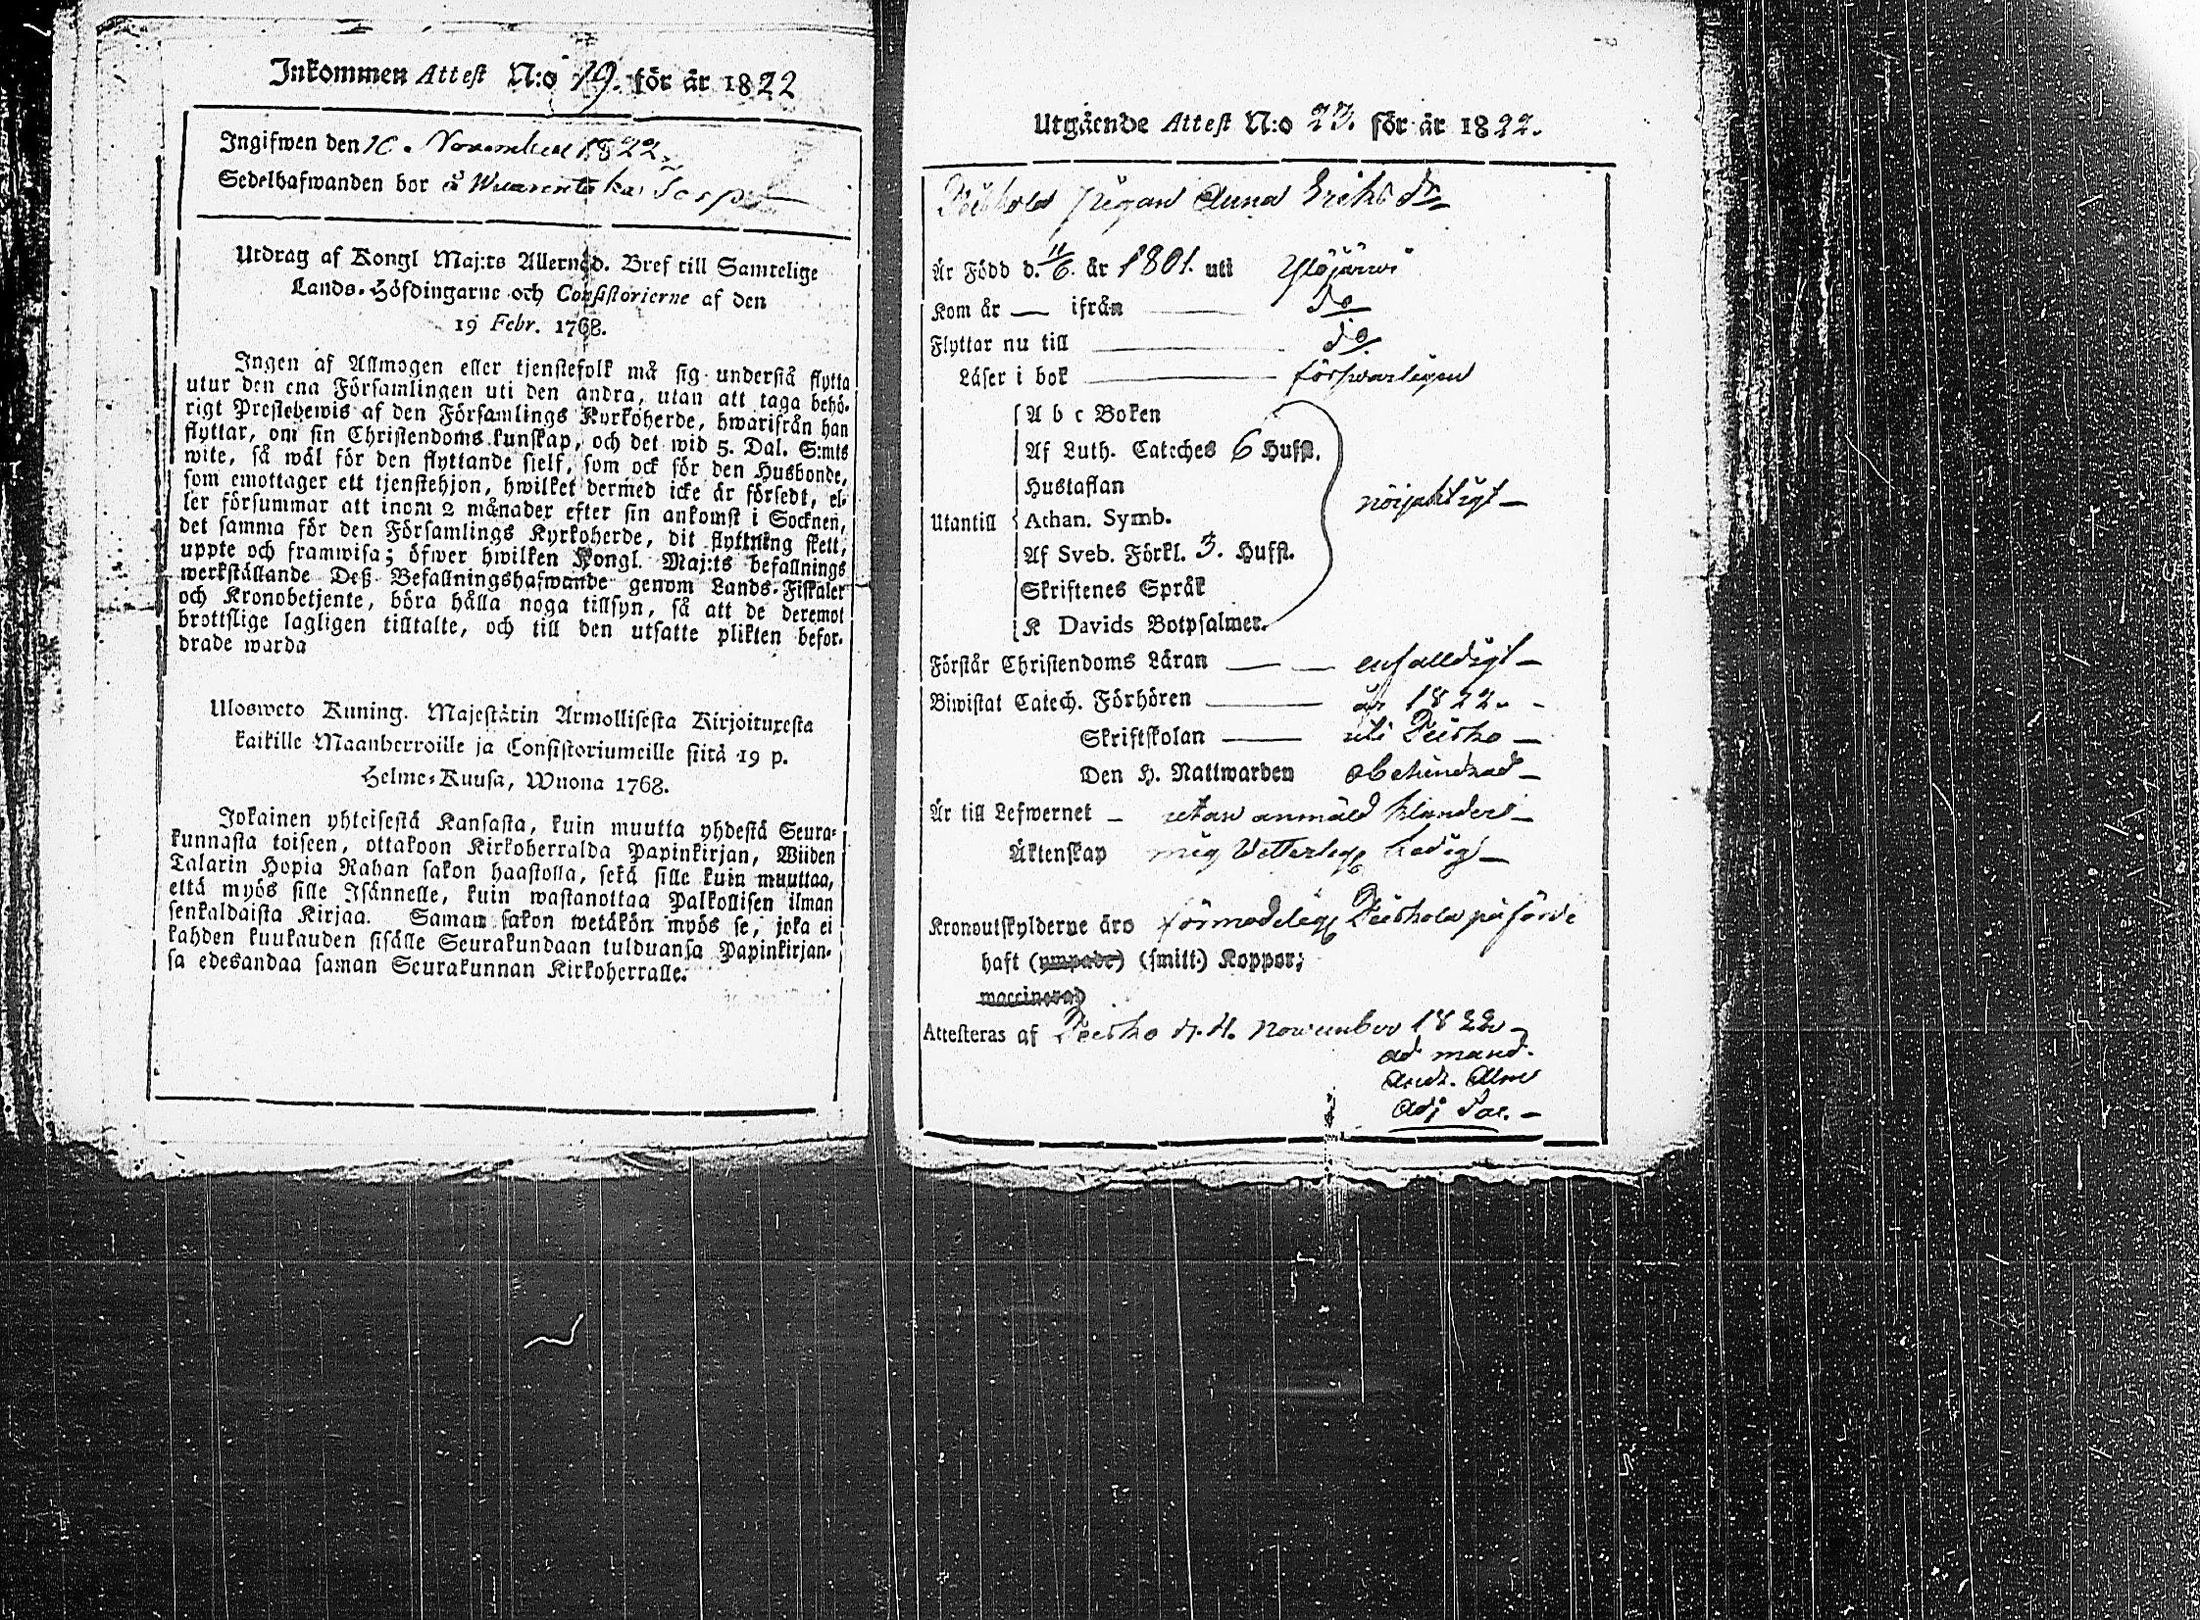 Inkommen Attest N:o 19. för år 1822
Ingifwen den 10. November 1822.
Sedelhafwanden bor å Wuorentaka
Utdrag af Kongl Maj:ts Allernåd. Bref till Samtelige
Lands-Höfdingarne och Consistorierne af den
19 Febr. 1768.
Ingen af Allmogen eller tjenstefolk må sig understå flytta
utur den ena Församlingen uti den andra, utan att taga behö-
rigt Prestebewis af den Församlings Kyrkoherde, hwarifrån han
flyttar, om sin Christendoms kunskap, och det wid 5. Dal. S:mts
wite, så wäl för den flyttande sjelf, som ock för den Husbonde,
som emottager ett tjenstehjon, hwilket dermed icke är försedt, el-
ler försummar att inom 2 månader efter sin ankomst i Socknen,
det samma för den Församlings Kyrkoherde, dit flyttning skett,
uppte och framwisa; öfwer hwilken Kongl. Maj:ts befallnings
werkställande Deß Befallningshafwande genom Lands-Fiskaler
och Kronobetjente, böra hålla noga tillsyn, så att de deremot
brottslige lagligen tilltalte, och till den utsatte plikten befor-
drade warda
Ulosweto Kuning. Majestätin Armollisesta Kirjoituxesta
kaikille Maanherroille ja Consistoriumeille siitä 19 p.
Helme-Kuusa, Wuona 1768.
Jokainen yhteisestä Kansasta, kuin muutta yhdestä Seura-
kunnasta toiseen, ottakoon Kirkoherralda Papinkirjan, Wiiden
Talarin Hopia Rahan sakon haastolla, sekä sille kuin muuttaa,
että myös sille Isännelle, kuin wastanottaa Palkollisen ilman
senkaldaista Kirjaa. Saman sakon wetäkön myös se, joka ei
kahden kuukauden sisälle Seurakundaan tulduansa Papinkirjan-
sa edesandaa saman Seurakunnan Kirkoherralle.
Utgående Attest N:o 23. för år 1822.
Pigan Anna Eriks dr
Är Född d. 11/6. år 1801. uti Ylöjärwi
Kom år — ifrån do
Flyttar nu till do
Läser i bok förswarligen
A b c Boken
Af Luth. Cateches 6 Hufst.
Hustaflan
Utantill Athan. Symb. nöjaktigt
Af Sveb. Förkl. 3. Hufst.
Skriftenes Språk
K Davids Botpsalmer.
Förstår Christendoms Läran enfaldigt
Biwistat Catech. Förhören år 1822.
Skriftskolan uti Teisko
Den H. Nattwarden obehindrad
Är till Lefwernet utan anmäld klander
Äktenskap mig Vetterlig. Ledig
Kronoutskylderne äro förmodelig. påförde
haft (ympade) (smitt.) Koppor;
waccinerad
Attesteras af Teisko d. 4. November 1822
ad mand.
Andr. Alm
Adj Sac.